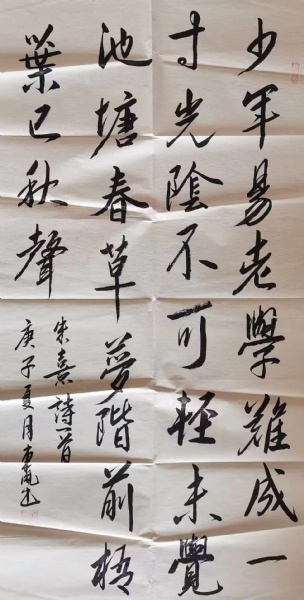 少年易老學難成一
寸光陰不可輕未覺
池塘春草夢階前梧
葉已秋聲
朱熹詩一首
庚子夏月